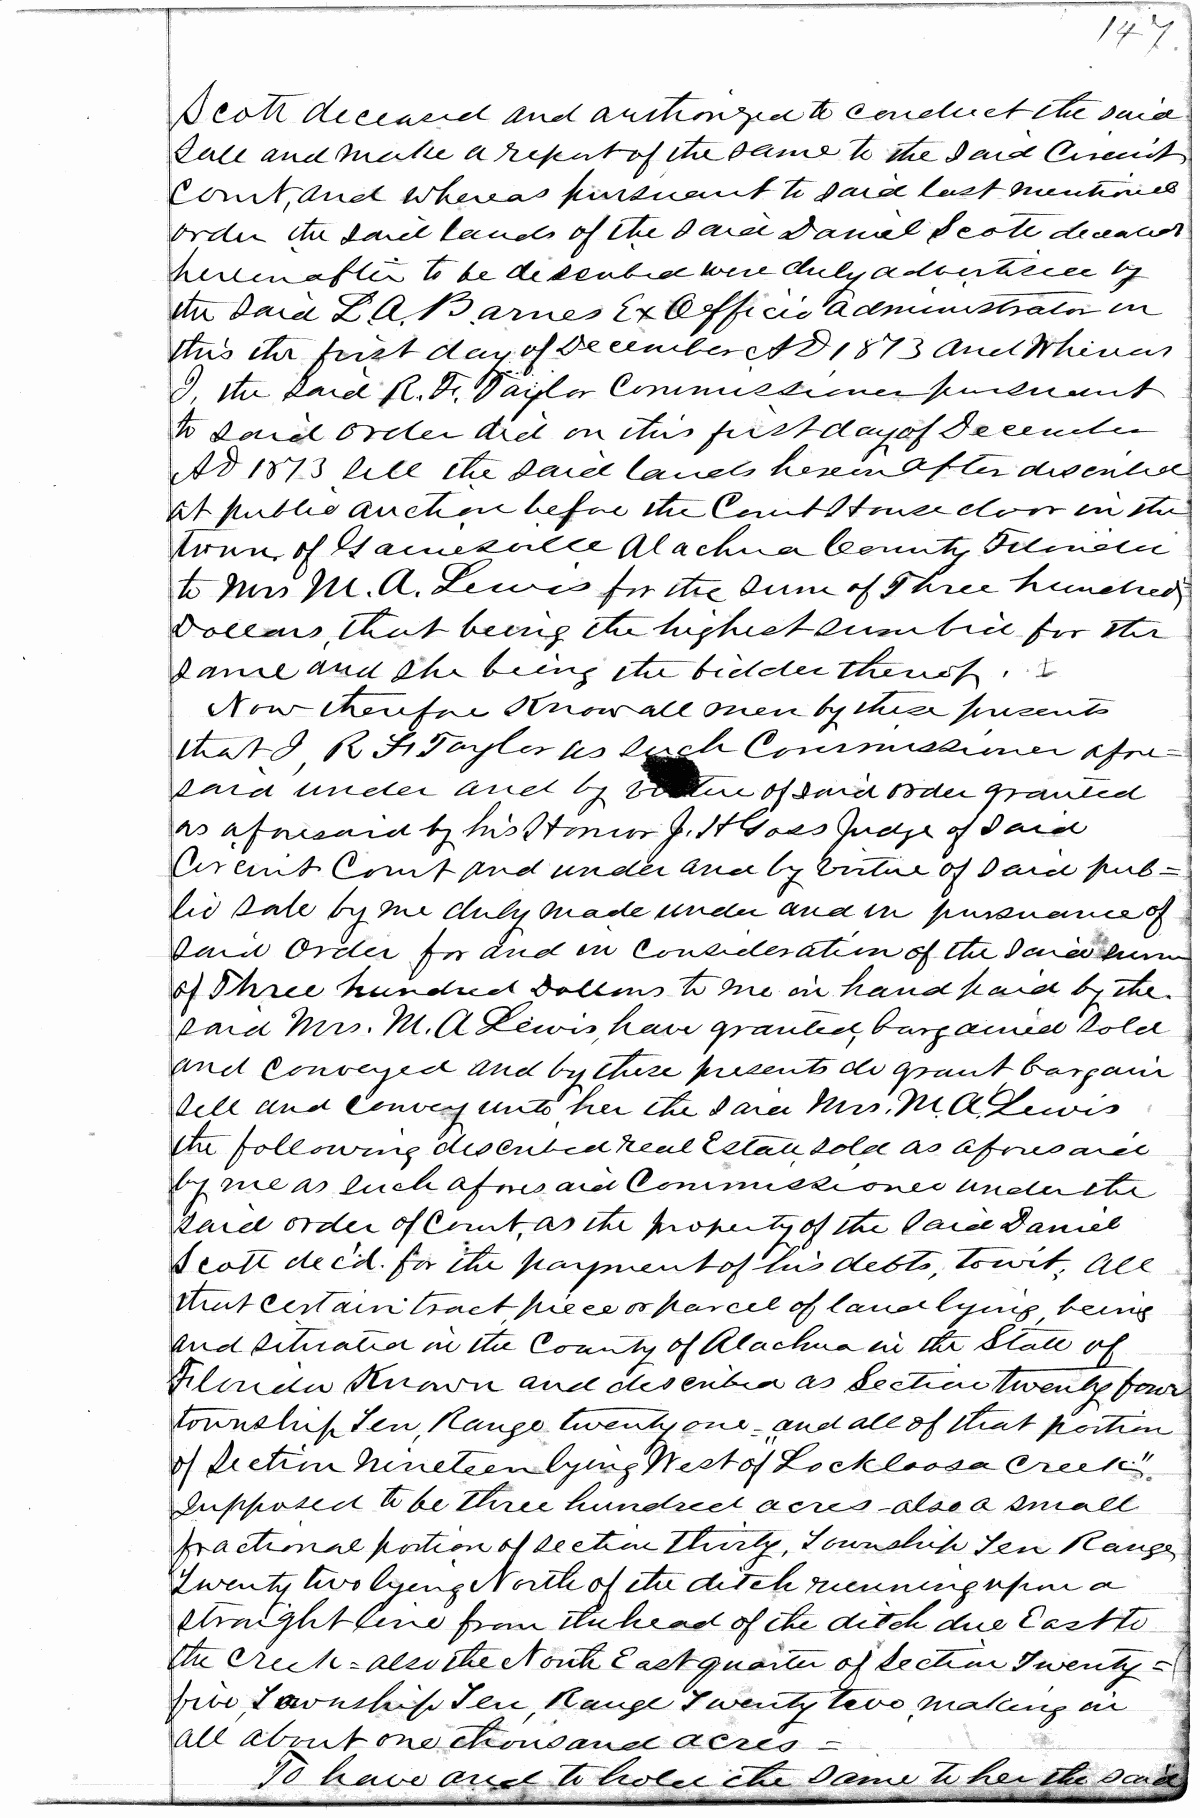 147.
Scott deceased and authorized to conduct the said
Sale and make a report of the same to the said Circuit
Court, and whereas pursuant to said last mentioned
order the said lands of the said Daniel Scott deceased
hereinafter to be described were duly advertised by
the said L. A. Barnes Ex Officio Administrator on
this the first day of December AD 1873 And Whereas
I, the said R. F. Taylor Commissioner pursuant
to said order did on this first day of December
AD 1873 sell the said lands herein after described
at public auction before the Court House door in the
town of Gainesville Alachua County Florida
to Mrs M. A. Lewis for the sum of Three hundred
Dollars, that being the highest sum bid for the
same and she being the bidder thereof.
Now therefore Know all men by these presents
that I, R F Taylor as such Commissioner afore=
said under and by virtue of said order granted
as aforesaid by his Honor J. H Goss Judge of said
Circuit Court and under and by virtue of said pub=
lic sale by me duly made under and in pursuance of
said Order for and in consideration of the said sum
of Three hundred Dollars to me in hand paid by the
said Mrs. M. A Lewis, have granted, bargained sold
and conveyed and by these presents do grant bargain
sell and convey unto her the said Mrs. M. A. Lewis
the following described real Estate sold as aforesaid
by me as such aforesaid Commissioner under the
said order of Court, as the property of the said Daniel
Scott dec'd. for the payment of his debts, towit; All
that certain tract, piece or parcel of land lying, being
and situated in the County of Alachua in the State of
Florida Known and described as Section twenty four
township Ten, Range twenty one = and all of that portion
of Section Nineteen lying West of "Lockloosa Creek"
supposed to be three hundred acres also a small
fractional portion of section thirty, Township Ten Range
Twenty two lying North of the ditch running upon a
straight line from the head of the ditch due East to
the Creek = also the North East quarter of Section Twenty =
five, Township Ten, Range Twenty two, making in
all about one thousand acres =
To have and to hold the same to her the said